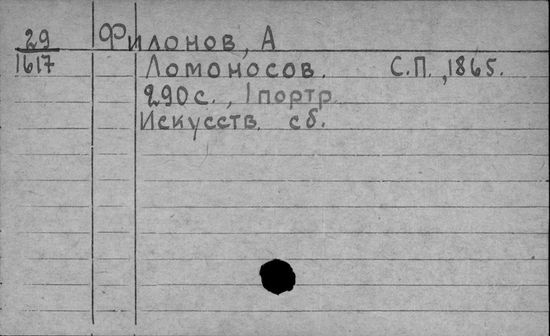 29 Филонов, А
1617 Ломоносов. С.П., 1865.
290 с., 1 портр
Искусств. сб.